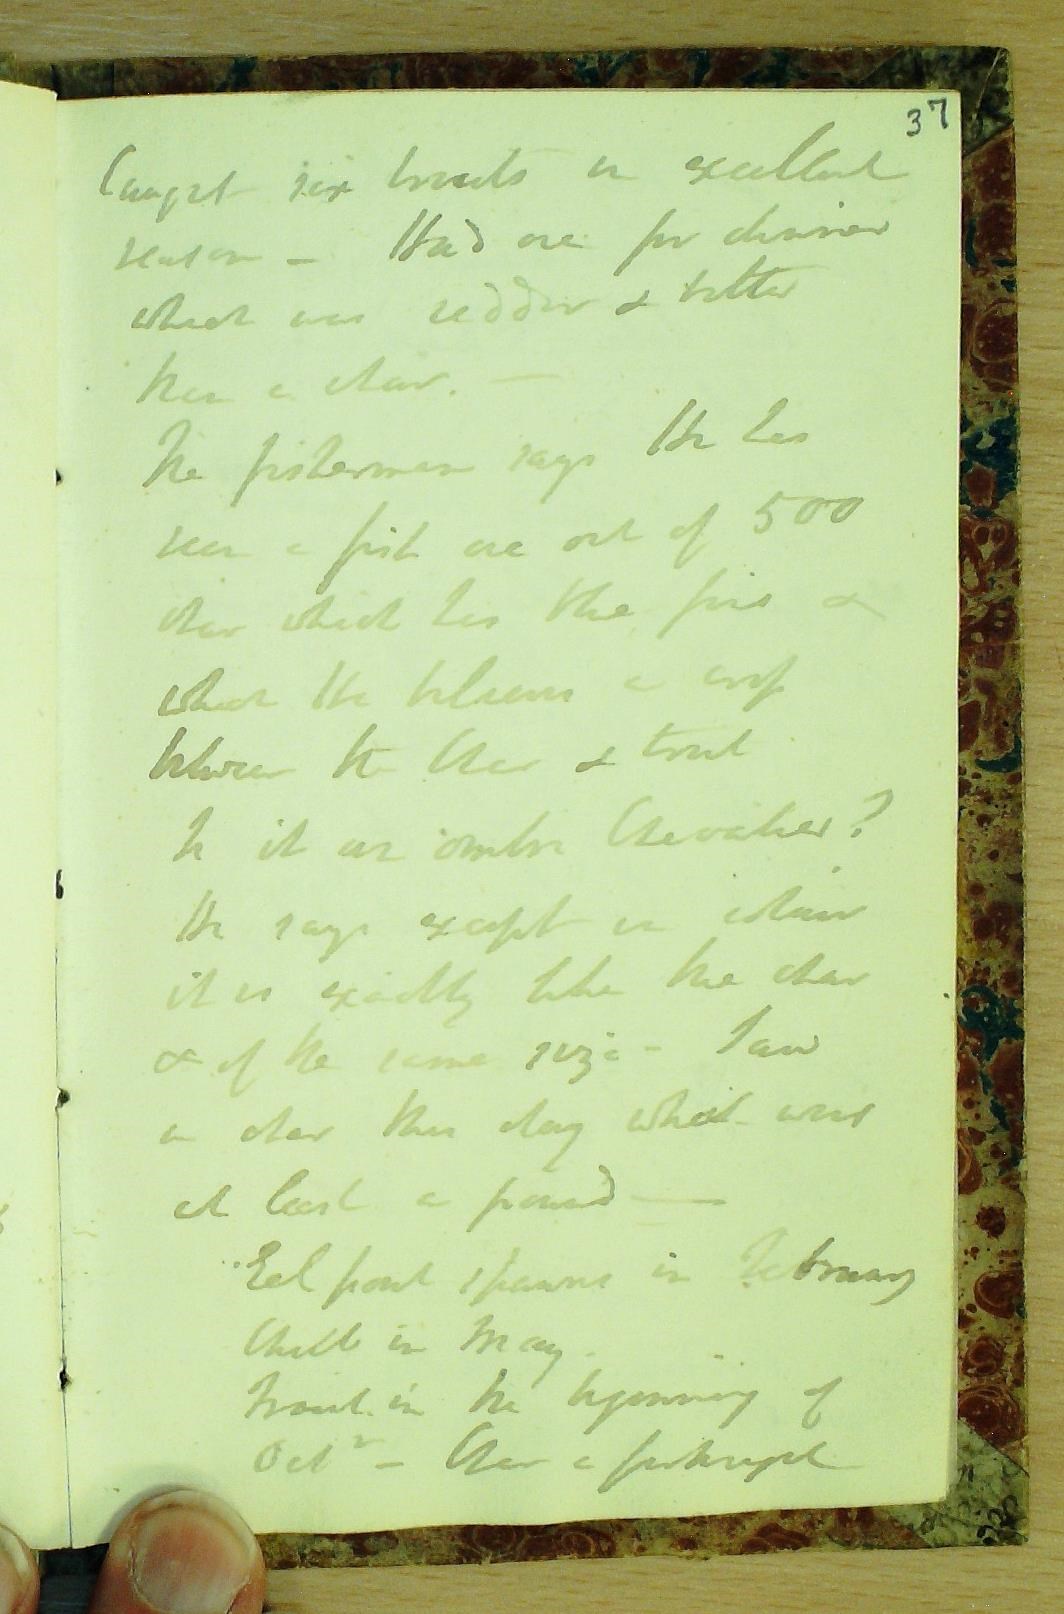 37
Caught six trouts in excellent
season - Had one for dinner
which was redder & better
than a char. -
The fisherman says He has
seen a fish one out of 500
char which has the fins &
what He believes a cross
between the Char & trout
Is it an ombre Chevalier?
He says except in colour
it is exactly like the char
& of the same size - Saw
a char this day which was
at least a pound -
Eel pout spawns in February
Chub in May.
Trout in the beginning of
Octr - Char a fortnight